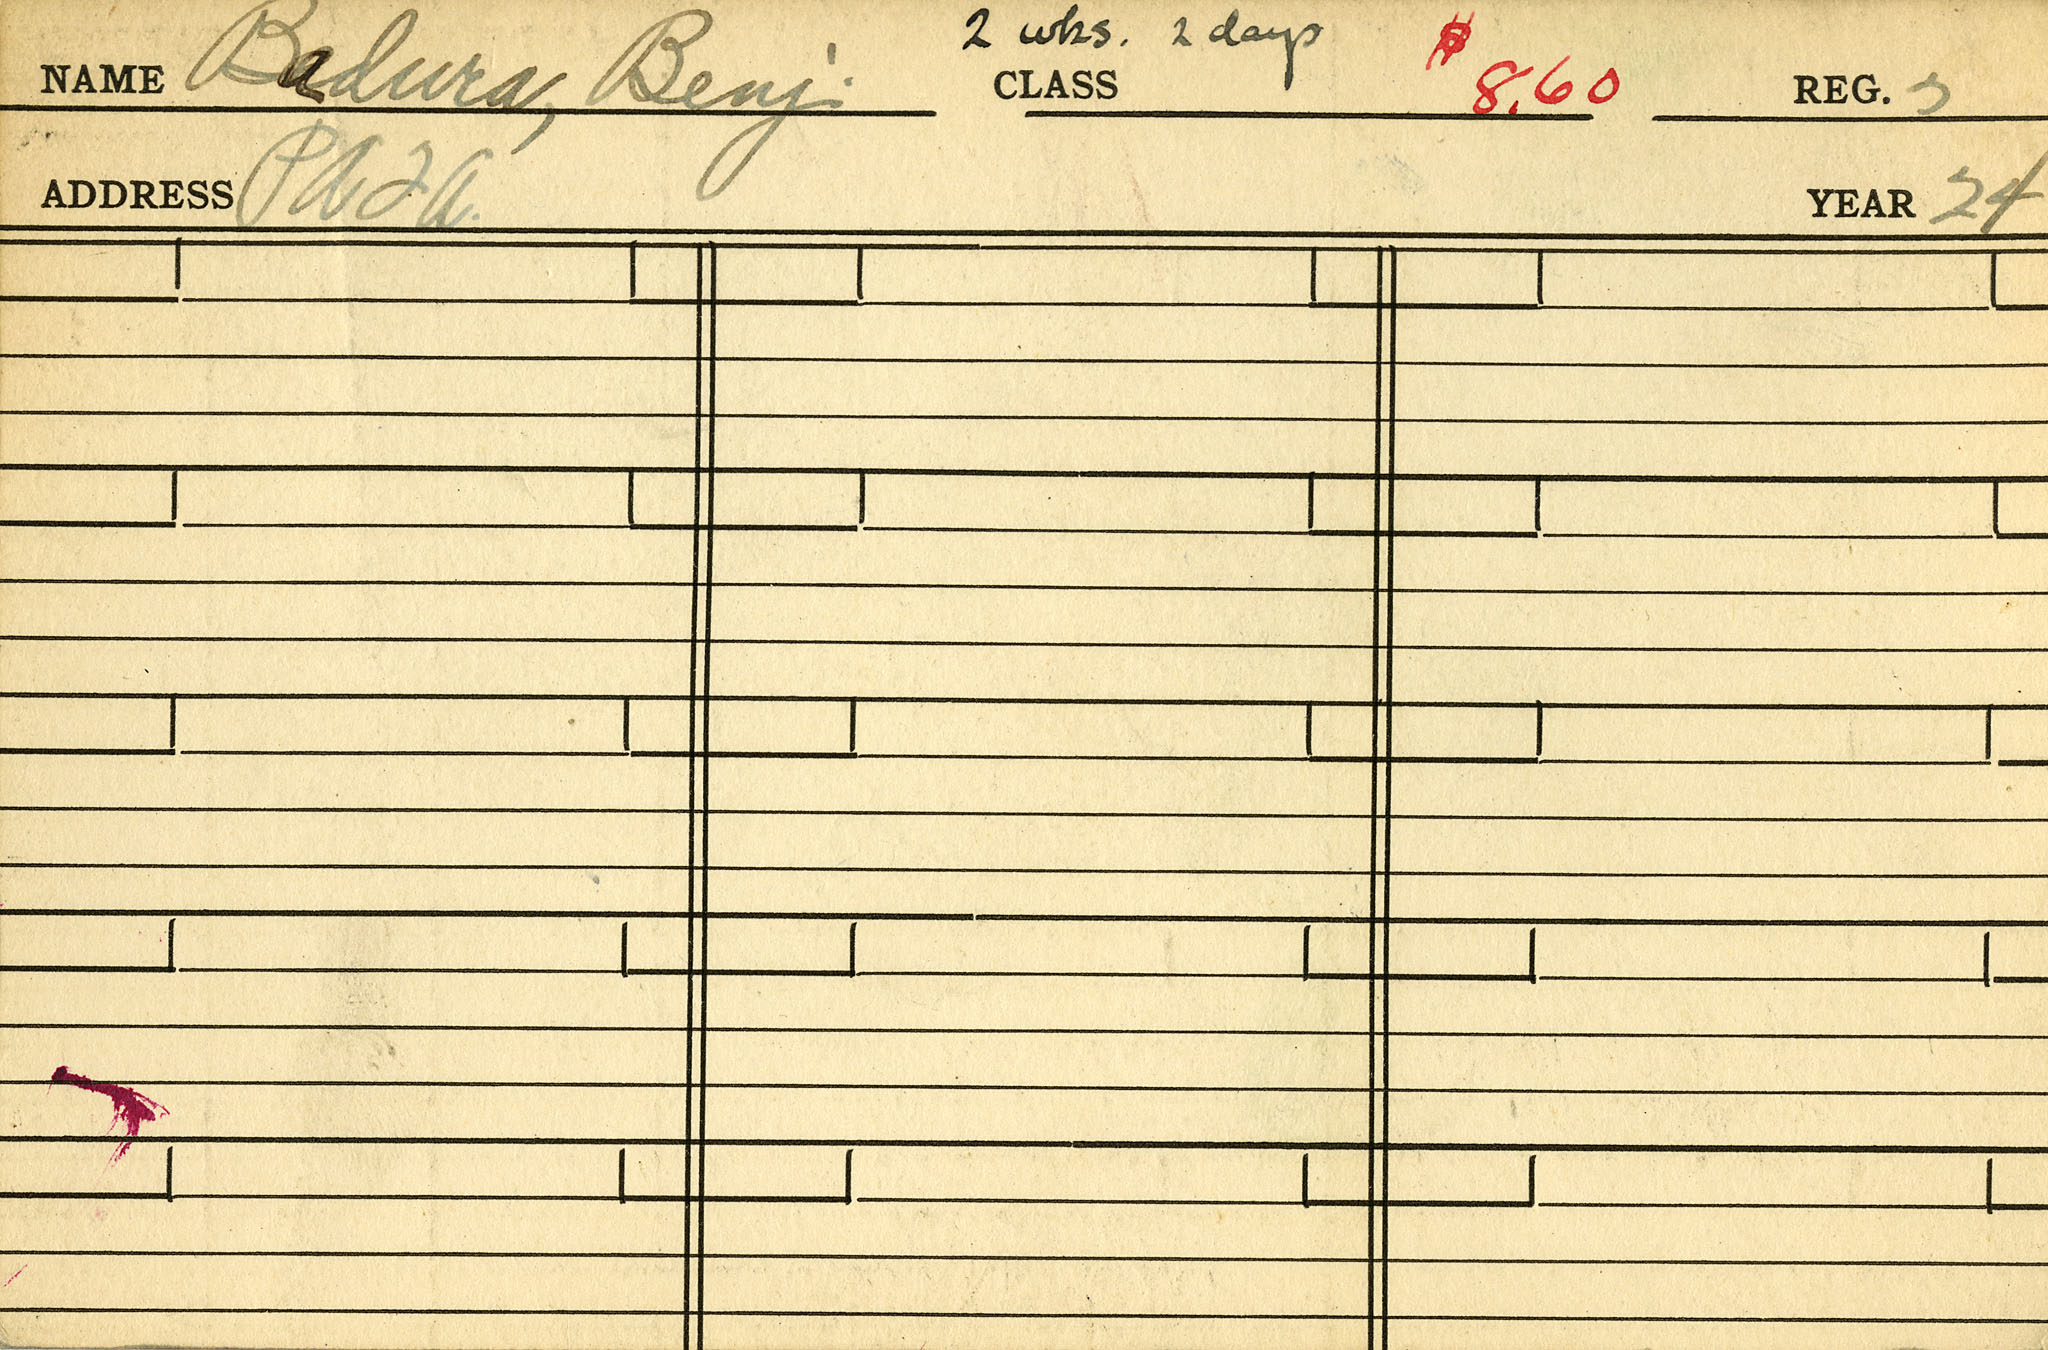 NAME Badura, Benj. 2 wks. 2 days CLASS $8.60 REG. 
ADDRESS YEAR 24